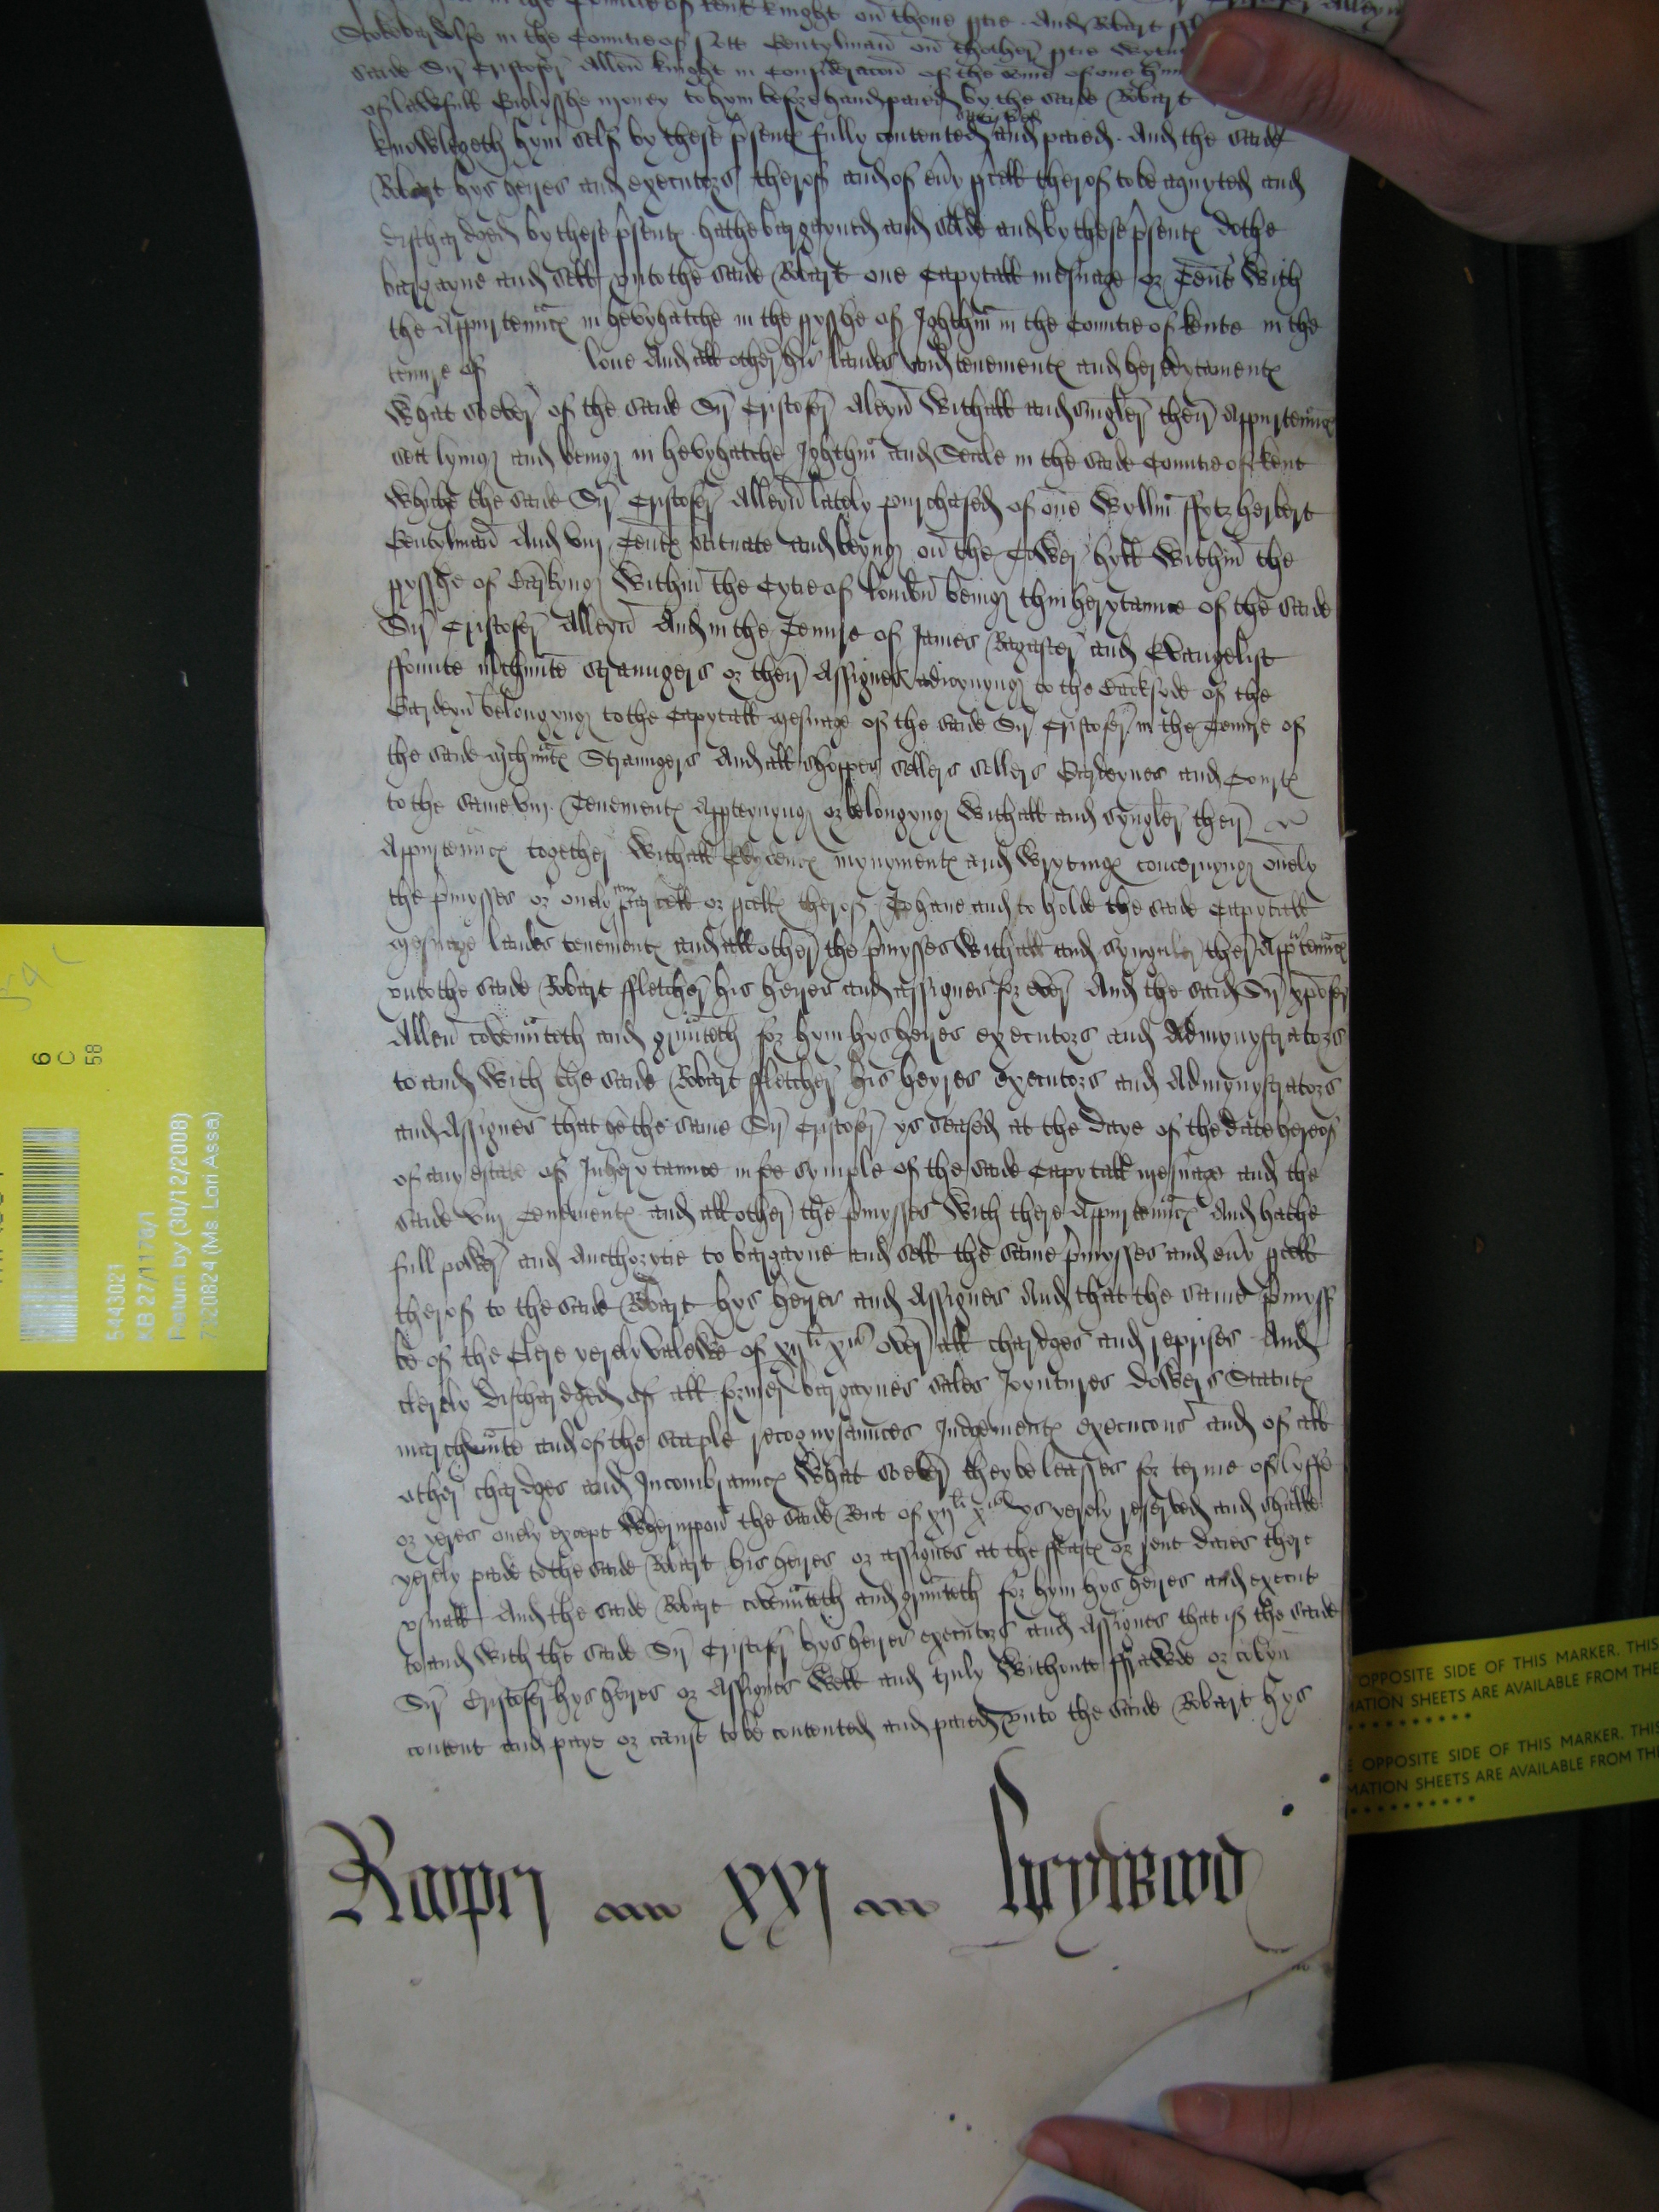 in the Countie of kent knight on thone ptie And Robart
Stokebardolfe in the Countie of Nott Gentylman on thother ptie
saide Syr Cristofer Allen knight in Consideracon of the some of one
of lawfull Englysshe money to hym before hand paied by the saide Robart
knowlegeth hym self by these psents fully contented and paied And the saide
Robart hys heyres and executors therof and of eny pcell therof to be aquyted and
dischardged by these psents hathe bargayned and solde and by these psents dothe
bargayne and sell unto the saide Robart one Capytall mesuage or Tent with
the Appurtennces in hevyhatche in the pysshe of Ightham in the Countie of kente in the
tenure of lone And all other his landes and tenements and heredytaments
what soever of the saide Syr Cristofer Aleyn with all and singler their Appurtennces
sett lying and being in hevyhatche Ightham and Seale in the saide Countie of kent
whiche the saide Syr Cristofer Alleyn lately purchased of one Wyllm ffytzherbert
Gentylman And viij Tents scituate and beyng on the Tower hyll within the
pysshe of Barkyng within the Cytie of london being thinherytance of the saide
Syr Cristofer Alleyn And in the Tenure of James Bagaster and Evangelist
ffonnte mchnte straungers or their Assignes adioynyng to the backsyde of the
Gardeyn belongyng to the Capytall mesuage of the saide Syr Cristofer in the Tenure of
the saide mchnts Straungers And all shoppes sellers sollers Gardeynes and Courts
to the same viij Tenements Appteynyng or belongyng with all and syngler their
Appurtennces together with all Evydences mynyments and wrytings concernyng onely
the pmysses or onely any parcell or pcells therof To haue and to holde the saide Capytall
mesuage landes tenements and all other the pmysses with all and synguler their Appurtennces
unto the saide Robart ffletcher his heyres and assignes for ever And the saide Syr xpofer
Allen covennteth and grunteth for hym hys heyres executors and Admynystrators
to and with the saide Robart ffletcher his heyres executors and Admynystrators
and Assignes that he the same Syr Cristofer ys seased at the daye of the date hereof
of any estate of Inherytance in fee symple of the saide Capytall mesuage and the
saide viij Tenements and all other the pmysses with there Appurtennces And hathe
full power and Aucthorytie to bargayne and sell the same pmysses and eny pcell
therof to the saide Robart hys heyres and Assignes And that the same pmyss
be of the Clere yerely valewe of xijli xs over all chardges and reprises And
clerely dischardged of all former bargaynes sales Joyntures dowers Statuts
marchunte and of the staple recognysaunces Judgements execucons and of all
other chardges and Incombraunces what soever they be leasses for terme of lyffe
or yeres onely except wheruppon the saide Rent of xijli ys yerely reserved and shalbe
yerely paide to the saide Robart his heyres or assignes at the ffeasts or rent daies there
usuall And the saide Robart covennteth and grunteth for hym hys heyres and execut
to and with the saide Syr Cristofer hys heyres executors and Assignes that if the saide
Syr Cristofer hys heyres or Assignes well and truly withoute ffrawde or covyn
content and paye or cause to be contented and paied unto the saide Robart hys
Roper XXj heywood
6
C
58
5443021
KB 27/1178/1
Return by (30/12/2008)
7320824 (Ms. Lori Assa)
OPPOSITE SIDE OF THIS MARKER. THIS
MATION SHEETS ARE AVAILABLE FROM THE
OPPOSITE SIDE OF THIS MARKER. THIS
MATION SHEETS ARE AVAILABLE FROM THE